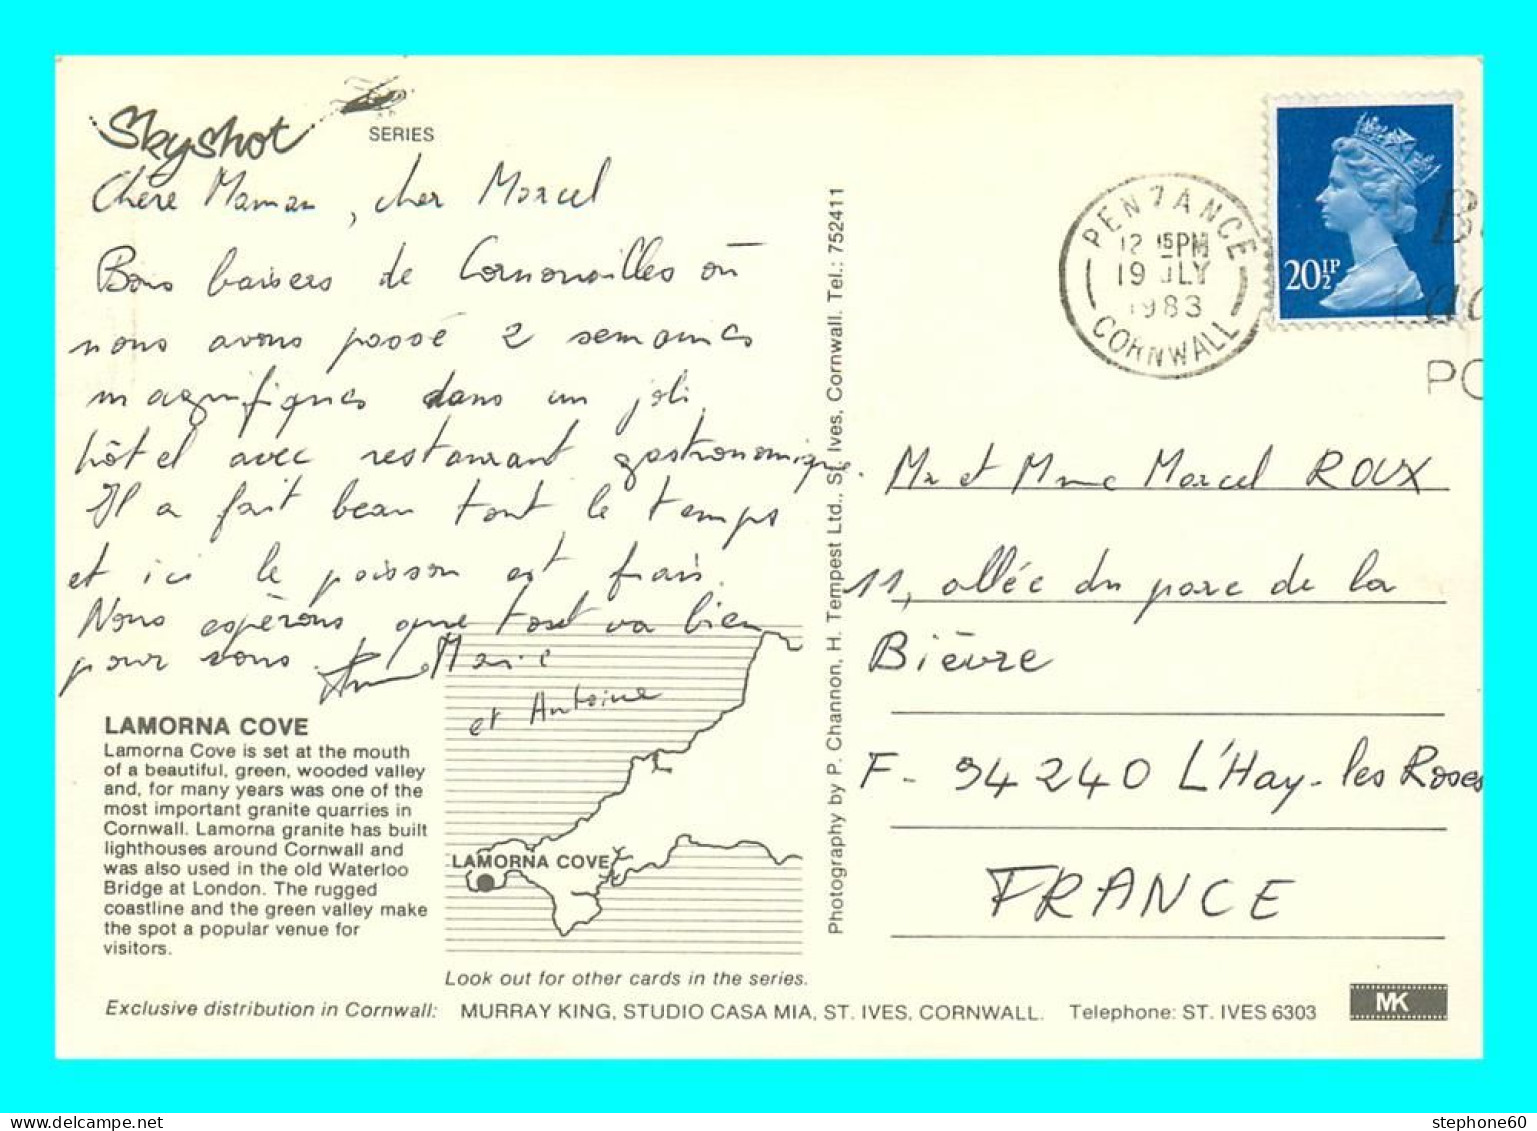 Skyshot
SERIES
Chère Maman, cher Marcel
Bons baisers de Cornouailles où
nous avons passé 2 semaines
magnifiques dans un joli
hôtel avec restaurant gastronomique.
Il a fait beau tout le temps
et ici le poisson est frais.
Nous espérons que tout va bien
pour vous. Anne Marie
et Antoine
LAMORNA COVE
Lamorna Cove is set at the mouth
of a beautiful, green, wooded valley
and, for many years was one of the
most important granite quarries in
Cornwall. Lamorna granite has built
lighthouses around Cornwall and
was also used in the old Waterloo
Bridge at London. The rugged
coastline and the green valley make
the spot a popular venue for
visitors.
LAMORNA COVE
Look out for other cards in the series.
Exclusive distribution in Cornwall: MURRAY KING, STUDIO CASA MIA, ST. IVES, CORNWALL. Telephone: ST. IVES 6303
MK
Photography by P. Channon, H. Tempest Ltd., St. Ives, Cornwall. Tel.: 752411
PENZANCE
12 15PM
19 JLY
1983
CORNWALL
20½P
Mr et Mme Marcel ROUX
11, allée du parc de la
Bièvre
F - 94240 L'Hay-les Roses
FRANCE
stephone60